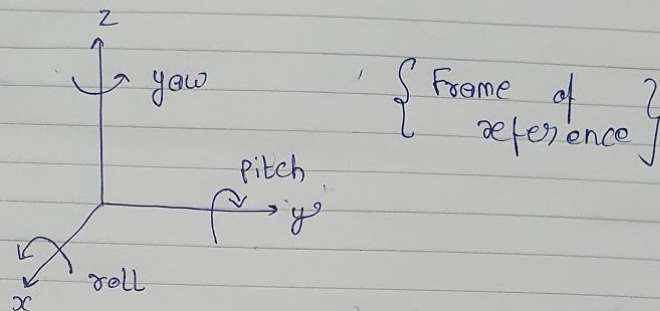 z
yaw
{ Frame of
reference }
Pitch
y
roll
x